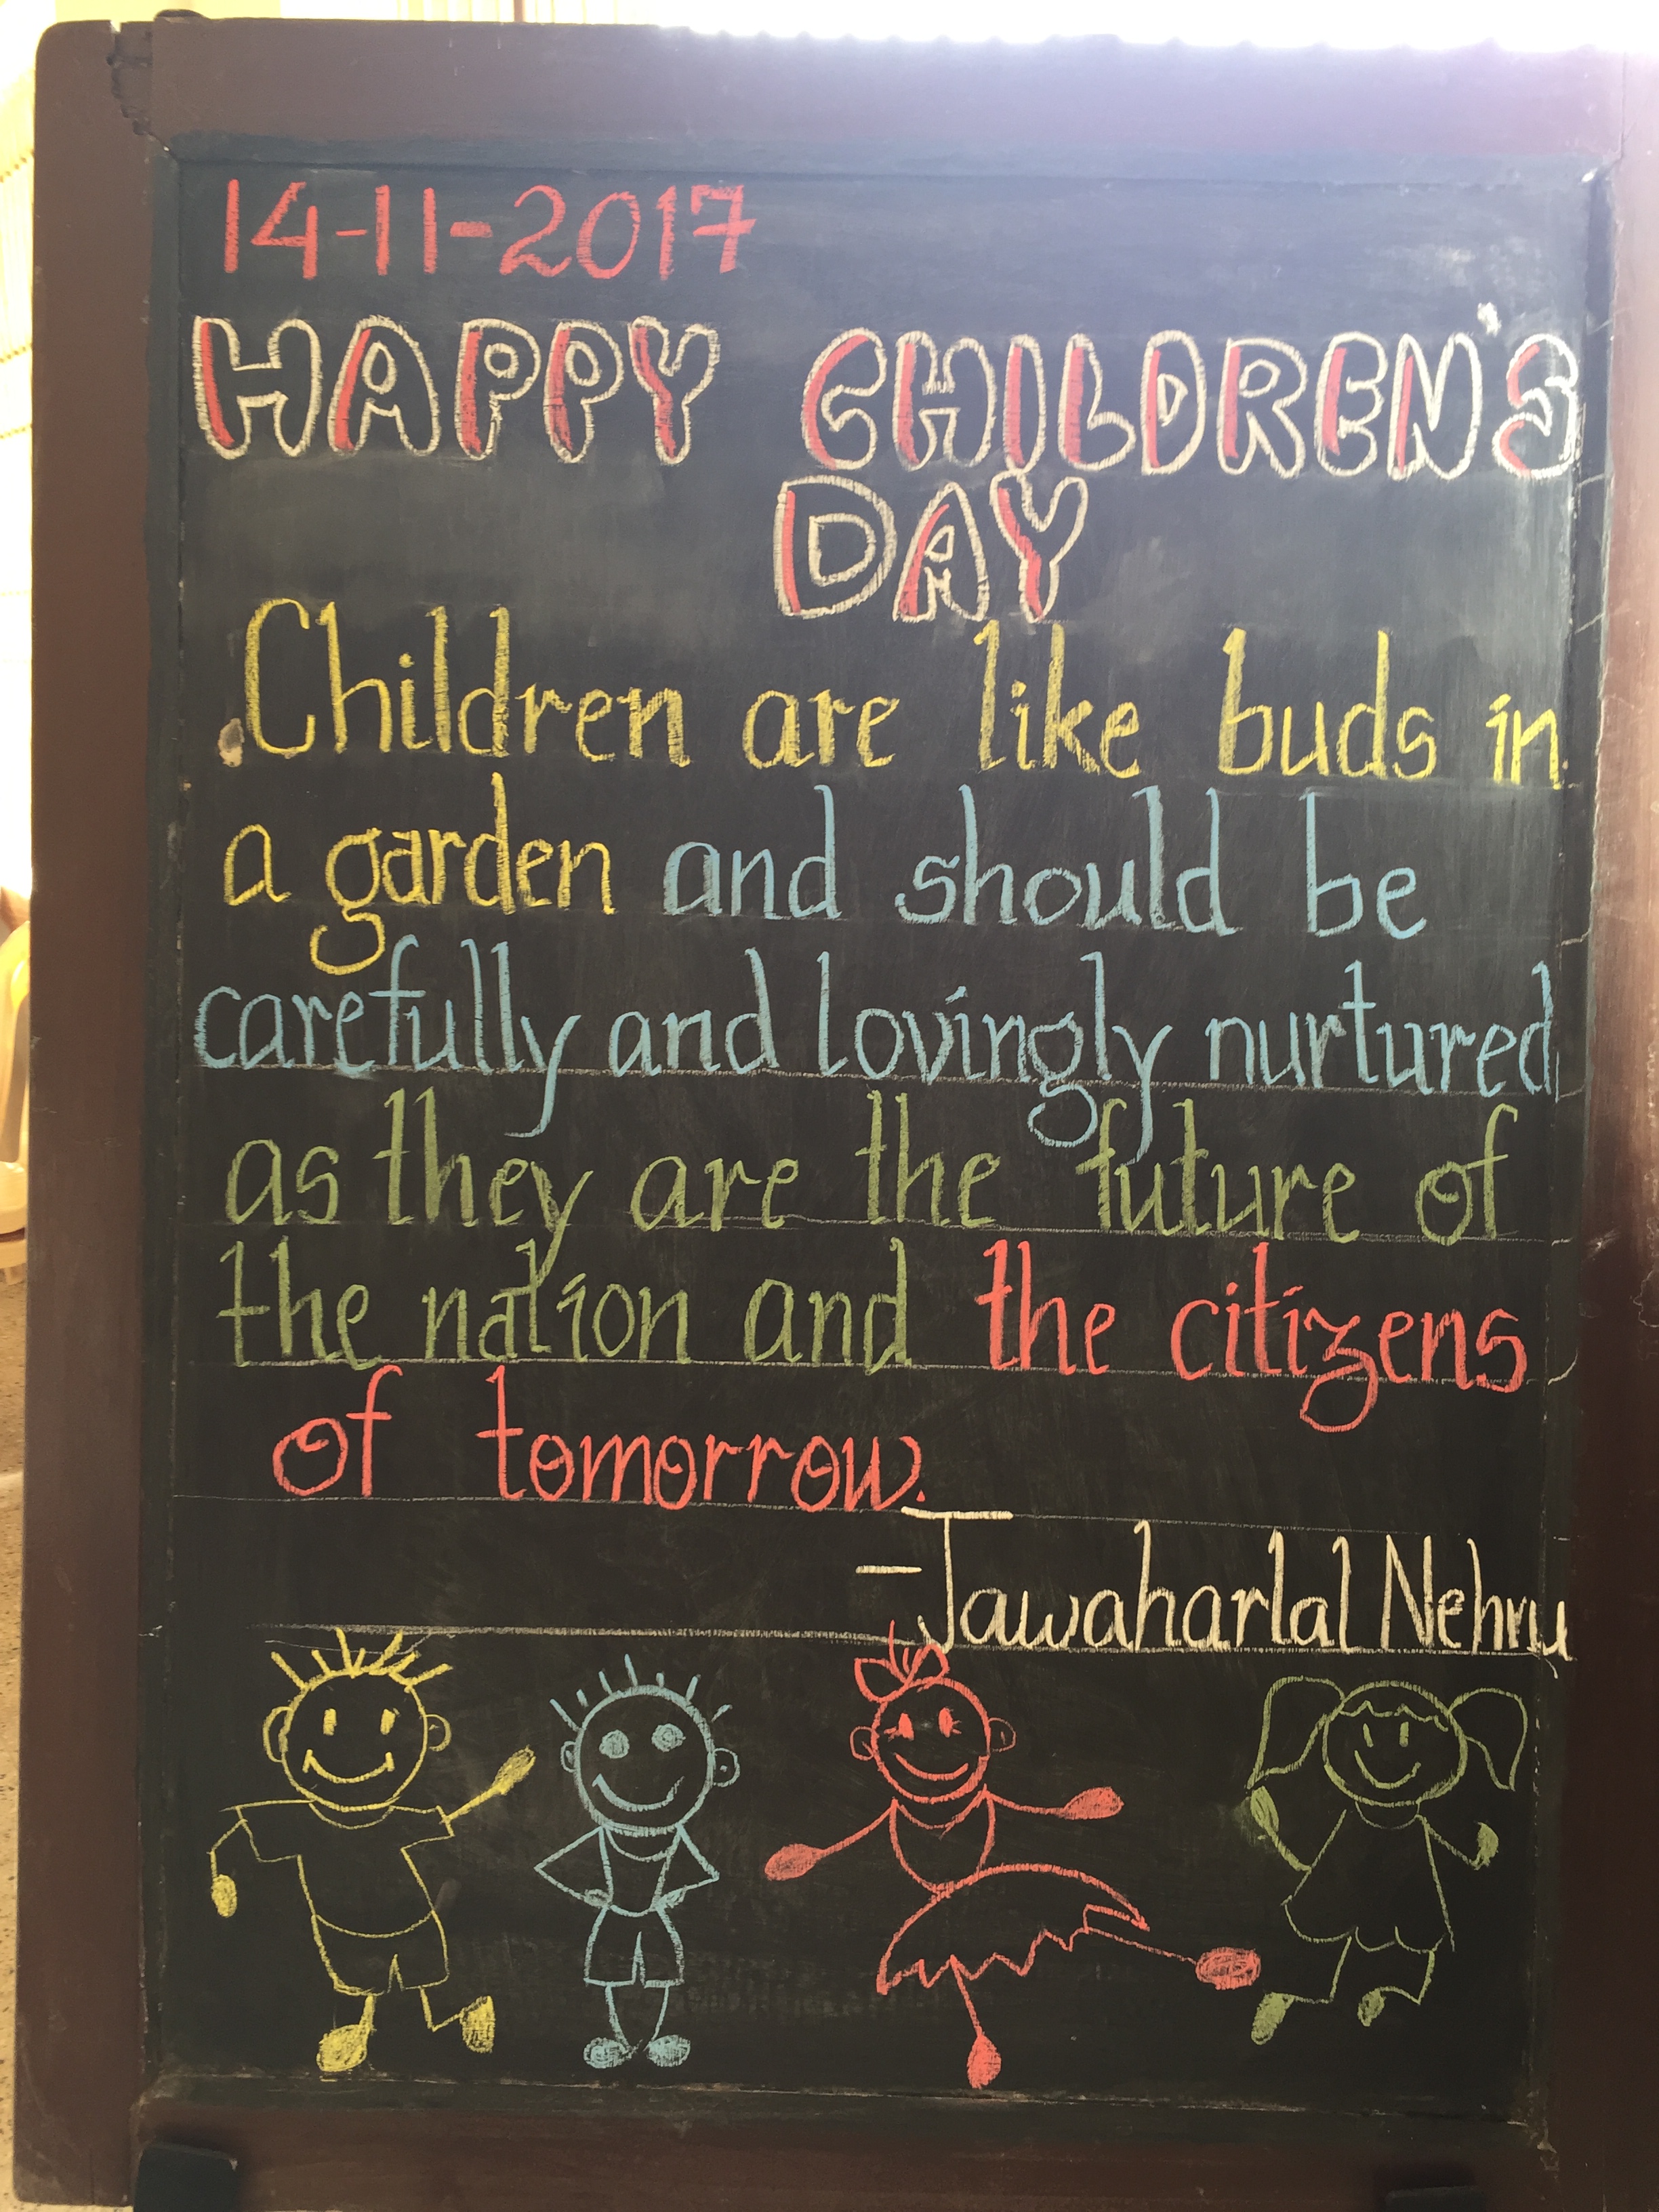 14-11-2017
HAPPY CHILDREN'S
DAY
Children are like buds in
a garden and should be
carefully and lovingly nurtured
as they are the future of
the nation and the citizens
of tomorrow.
-Jawaharlal Nehru